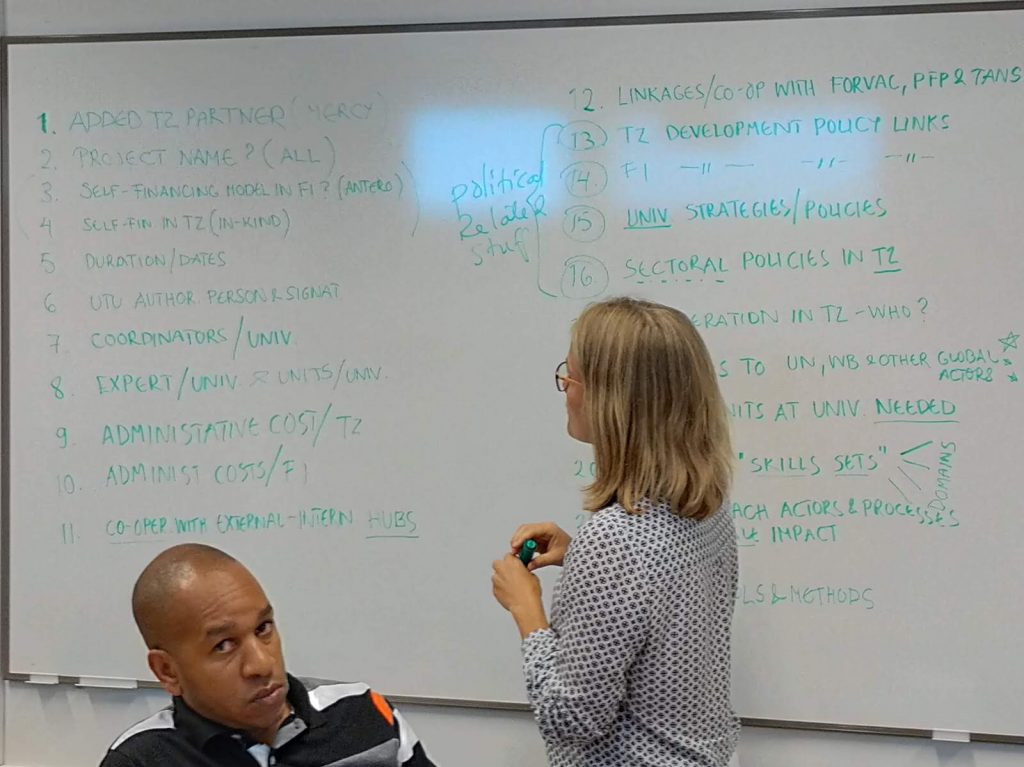 1. ADDED TZ PARTNER (MERCY)
2. PROJECT NAME? (ALL)
3. SELF-FINANCING MODEL IN FI? (ANTERO)
4 SELF-FIN IN TZ (IN-KIND)
5 DURATION/DATES
6 UTU AUTHOR. PERSON & SIGNAT
7. COORDINATORS/UNIV.
8. EXPERT/UNIV. & UNITS/UNIV.
9. ADMINISTATIVE COST/TZ
10. ADMINIST COSTS/FI
11. CO-OPER WITH EXTERNAL-INTERN HUBS
political
Related
stuff
12. LINKAGES/CO-OP WITH FORVAC, PFP & TANS
13 TZ DEVELOPMENT POLICY LINKS
14. FI —"— —"— —"—
15 UNIV. STRATEGIES/POLICIES
16 SECTORAL POLICIES IN TZ
ERATION IN TZ - WHO?
S TO UN, WB & OTHER GLOBAL
ACTORS
NITS AT UNIV. NEEDED
20 "SKILLS SETS"
DOMAINS
ACH ACTORS & PROCESSES
IMPACT
LS & METHODS